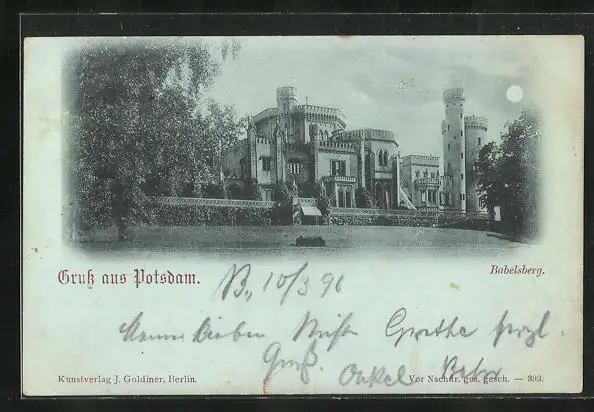 Gruß aus Potsdam.
Babelsberg.
B, 10/3 98
Meiner lieben Grethe herzl.
Gruß Onkel
Kunstverlag J. Goldiner, Berlin.
Vor Nachdr. ges. gesch. — 393.